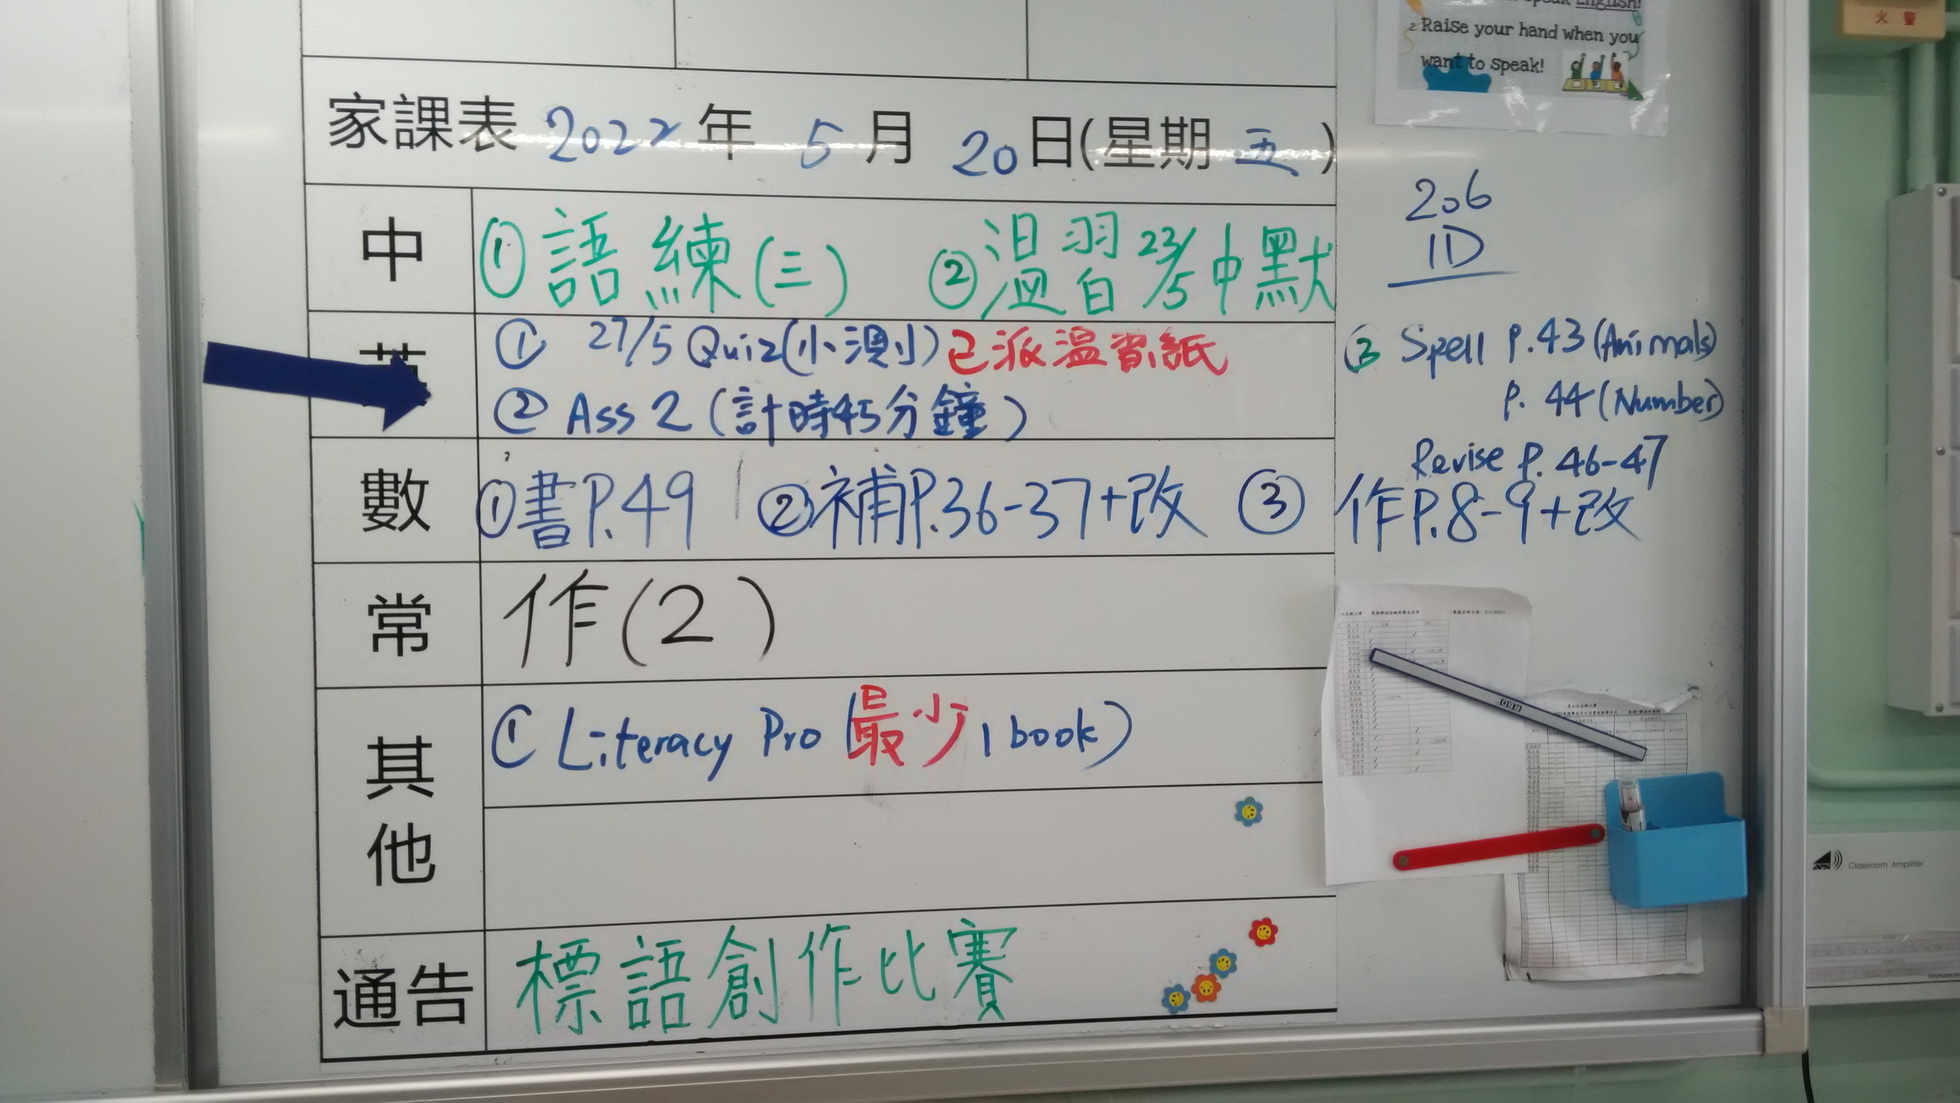 Raise your hand when you
want to speak!
火警
家課表 2022年 5月 20日(星期五)
206
1D
中 ①語練(三) ②溫習23/5中默
英 ① 27/5 Quiz(小測)已派溫習紙
② Ass 2 (計時45分鐘)
③ Spell P.43 (Animals)
P. 44 (Number)
Revise P. 46-47
數 ①書P.49 ②補P.36-37+改 ③ 作P.8-9+改
常 作(2)
其他 ① Literacy Pro (最少 1 book)
通告 標語創作比賽
Classroom Amplifier